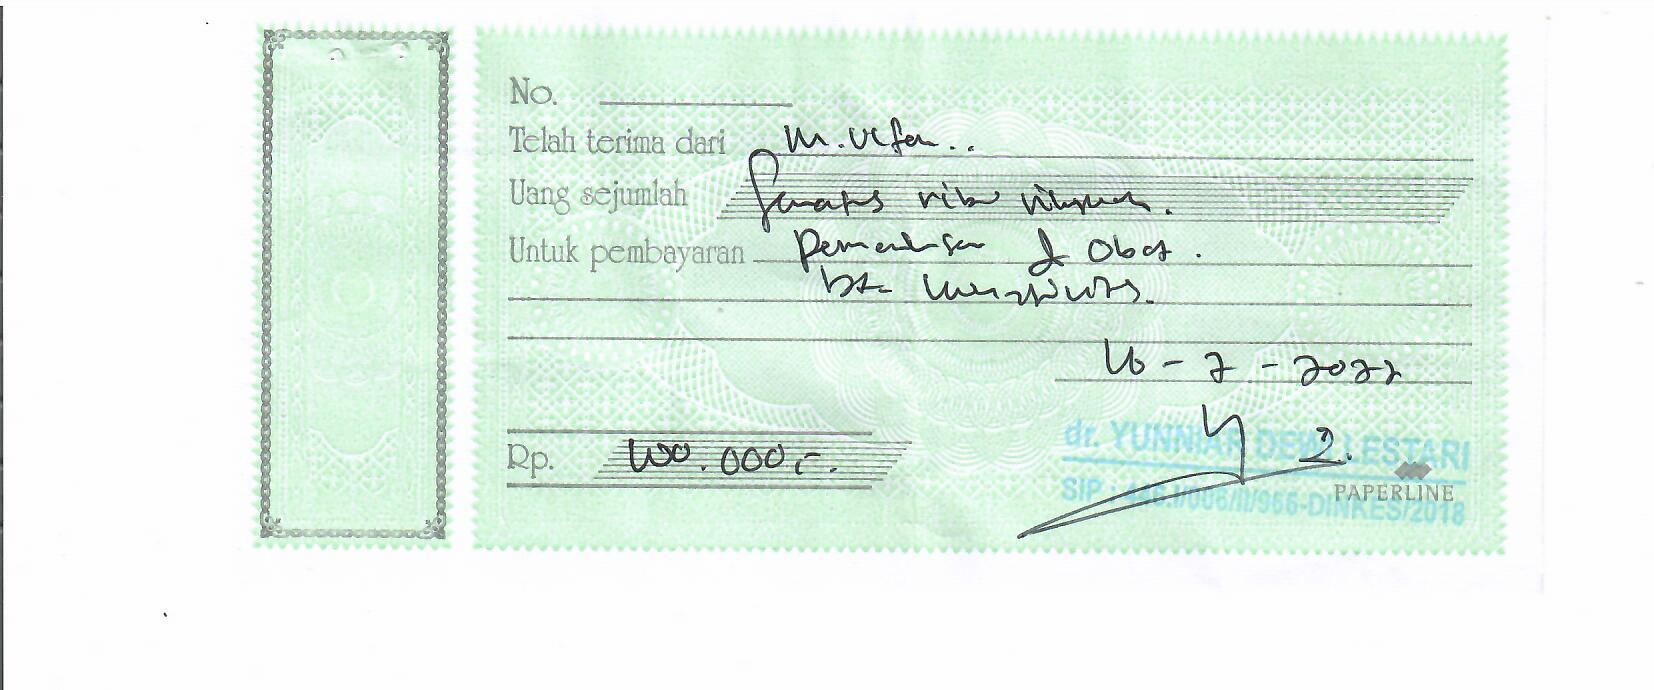 No.
Telah terima dari M. Ulfan..
Uang sejumlah Seratus ribu rupiah.
Untuk pembayaran Pemeriksaan & Obat.
16 - 7 - 2022
Rp. 100.000,-.
dr. YUNNIAR DEWI LESTARI
PAPERLINE
SIP : /II/966-DINKES/2018